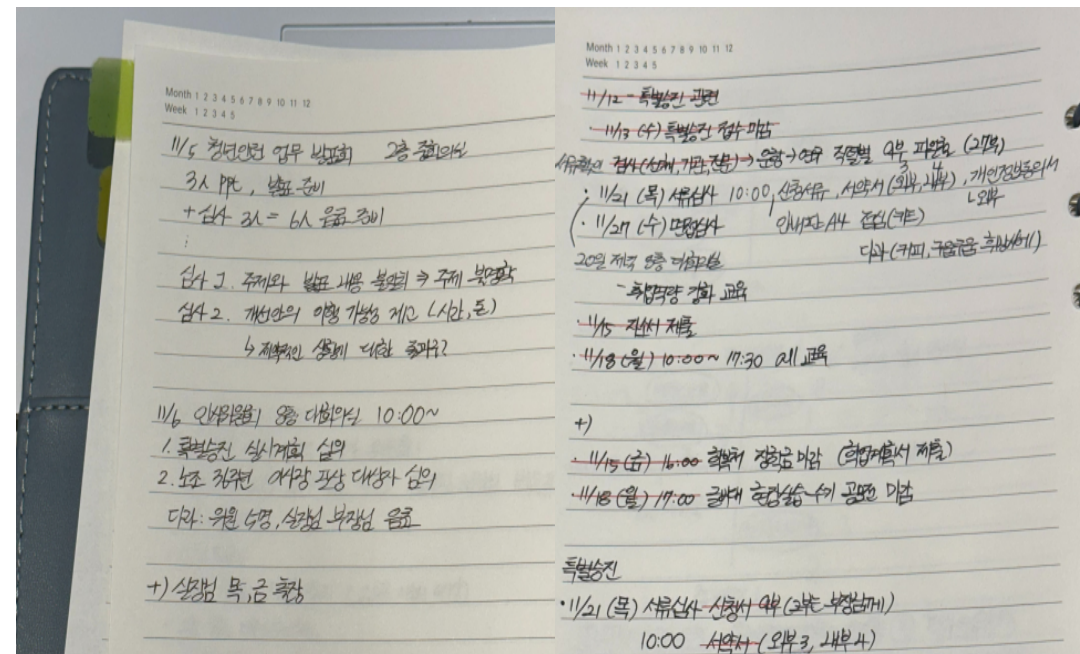 Month 1 2 3 4 5 6 7 8 9 10 11 12
Week 1 2 3 4 5
11/5 청년인턴 업무 발표회 2층 중회의실
3人 PPT, 발표 준비
+ 심사 3人 = 6人 음료 준비
심사 1. 주제와 발표 내용 불일치 → 주제 불명확
심사 2. 개선안의 이행 가능성 제고 (시간, 돈)
↳ 제약적인 상황에 대한 효과는?
11/6 인사위원회 8층 대회의실 10:00~
1. 특별승진 실시계획 심의
2. 노조 36주년 이사장 표창 대상자 심의
다과: 위원 5명, 실장님 부장님 음료
+) 실장님 목, 금 출장
Month 1 2 3 4 5 6 7 8 9 10 11 12
Week 1 2 3 4 5
11/12 - 특별승진 관련
· 11/13 (수) 특별승진 접수 마감
→ 운항 → 연구 직렬별 9부 파일철 (27부)
3 4
· 11/21 (목) 서류심사 10:00, 신청서류, 서약서 (외부, 내부), 개인정보동의서
↳ 외부
· 11/27 (수) 면접심사 안내판 A4 점심 (카드)
20일 제주 8층 대회의실 다과 (커피,
- 취업역량 강화 교육
· 11/15 제출
· 11/18 (월) 10:00 ~ 17:30 교육
+)
· 11/15 (금) 16:00 장학금 마감 (학업계획서 제출)
· 11/18 (월) 17:00 현장실습 수기 공모전 마감
특별승진
· 11/21 (목) 서류심사 신청서 9부 (2부는 부장님께)
10:00 서약서 (외부 3, 내부 4)